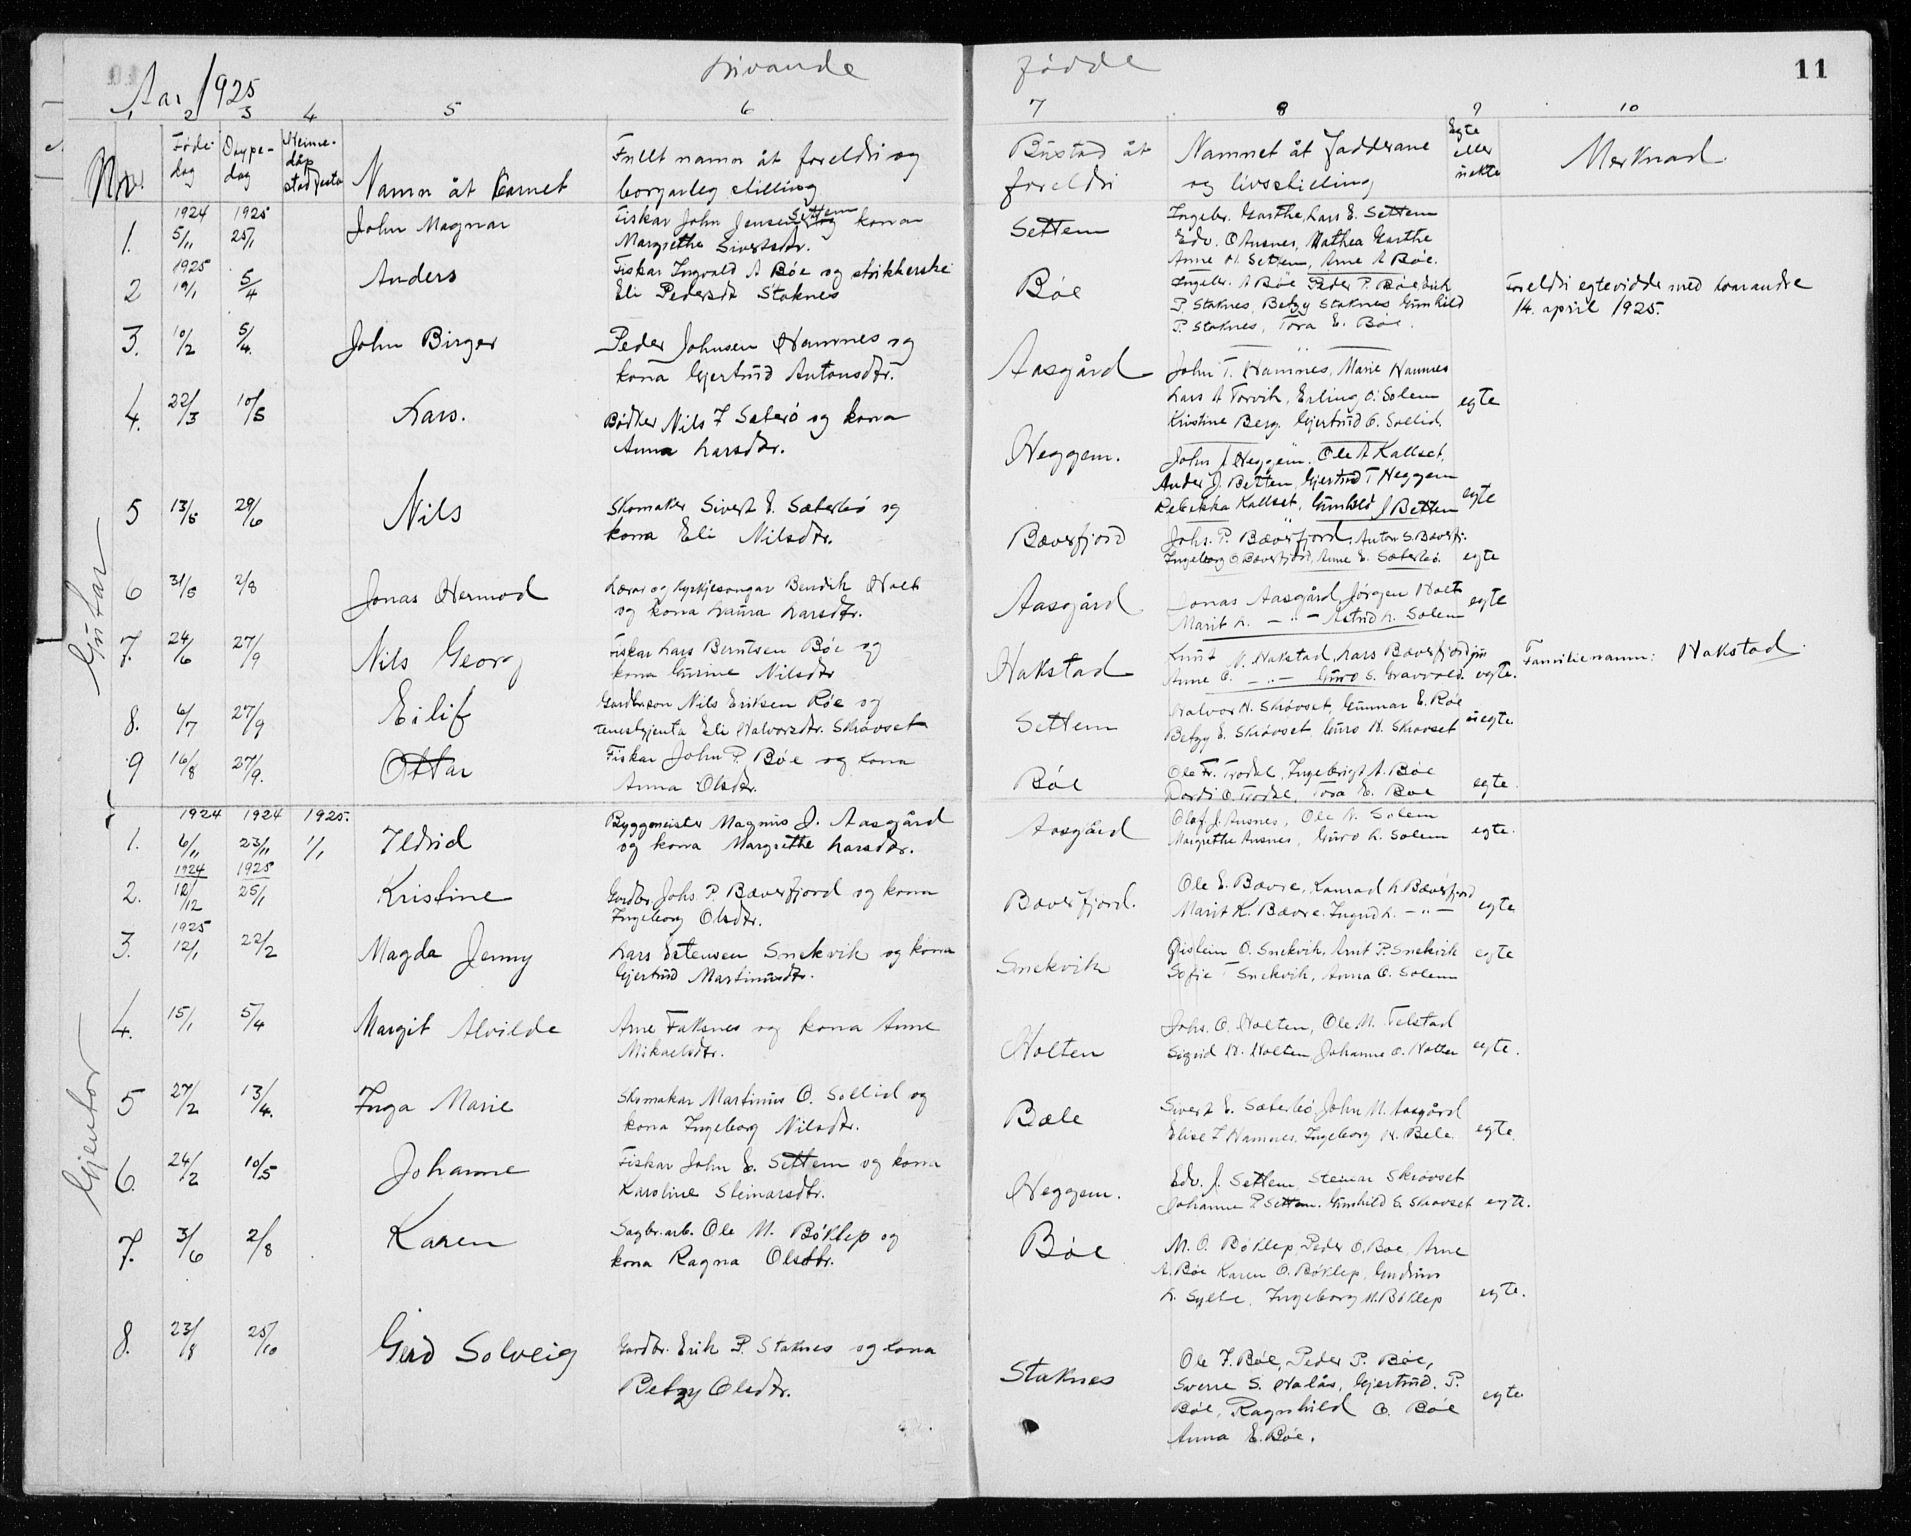 Aar 1925 Livande fødde 11
1 2 3 4 5 6 7 8 9 10
Nr. Føde-dag Døype-dag Heime-dåp stadfesta Namn åt barnet Fullt namn åt foreldri og borgarleg stilling Bustad åt foreldri Namnet åt Fadderane og livsstilling Egte eller uekte Merknad
Gutar
1924 1925
1. 5/11 25/1 John Magnar Fiskar John Jensen Settem og kona
Margrethe Sivertsdtr. Settem
Ingebr. Garthe, Lars E. Settem
Edv. O Ansnes, Mathea Garthe
Anne H. Settem, Arne A Bøe.
1925
2 19/1 5/4 Anders Fiskar Ingvald A Bøe og strikkerske
Eli Pedersdtr Staknes Bøe
Ingebr. A Bøe Peder P. Bøe Erik
P. Staknes, Betzy Staknes Gunhild
P. Staknes, Tora E. Bøe.
Foreldri egtevidde med kvarandre
14. april 1925.
3. 10/2 5/4. John Birger Peder Johnsen Hamnes og
kona Gjertrud Antonsdtr. Aasgård
John T. Hamnes, Marie Hamnes
Lars A Torvik, Erling O. Solem
Kristine Berg. Gjertrud O. Sollid.
egte
4. 22/3 10/5 Lars. Bødker Nils J Sæterbø og kona
Anna Larsdtr. Heggem.
John J Heggem. Ole A Kallset,
Ander J. Betten, Gjertrud T Heggem
Rebekka Kallset, Gunhild J Betten
egte
5 13/5 29/6 Nils Skomaker Sivert E. Sæterbø og
kona Eli Nilsdtr. Bæverfjord
Johs. P. Bæverfjord, Anton S. Bæverfj.
Ingeborg O Bæverfjord, Anne E. Sæterbø.
egte
6 31/5 2/8 Jonas Hermod Lærar og kyrkjesongar Bendik Holt
og kona Laura Larsdtr. Aasgård
Jonas Aasgård, Jørgen Holt
Marit L. — " — Astrid L. Solem
egte
7. 24/6 27/9 Nils Georg Fiskar Lars Berntsen Bøe og
kona Gurine Nilsdtr Hakstad
Knut N. Hakstad, Lars Bæverfjord jr
Anne O. — " — Guro S. Gravvold.
egte.
Familienamn: Hakstad.
8. 6/7 27/9 Eilif Gardbr.son Nils Eriksen Røe og
tenestgjenta Eli Halvorsdtr. Skrøvset Settem
Halvor H. Skrøvset, Gunnar E. Røe
Betzy E. Skrøvset Guro H. Skrøvset
uegte.
9 16/8 27/9. Ottar Fiskar John P. Bøe og kona
Anna Olsdtr. Bøe
Ole Fr. Trodal, Ingebrigt A. Bøe
Dordi O. Trodal, Tora E. Bøe
egte.
Gjentor
1924 1924 1925.
1. 6/11 23/11 1/1 Ildrid Byggmeister Magnus J. Aasgård
og kona Margrethe Larsdtr. Aasgård
Olaf J. Ansnes, Ole L. Solem
Margrethe Ansnes, Guro L. Solem
egte.
1924 1925
2. 12/12 25/1 Kristine Gardbr. Johs. P. Bæverfjord og kona
Ingeborg Olsdtr. Bæverfjord.
Ole E. Bævre, Konrad L. Bæverfjord
Marit K. Bævre. Ingrid L. — " —
egte
1925
3. 12/1 22/2 Magda Jenny Lars Estensen Snekvik og kona
Gjertrud Martinusdtr. Snekvik
Øistein O. Snekvik, Arnt P. Snekvik
Sofie T Snekvik, Anna O. Solem
egte
4. 15/1 5/4 Margit Alvilde Arne Faksnes og kona Anne
Mikaelsdtr. Holten
Johs. O. Holten, Ole M. Telstad
Sigrid H. Holten, Johanne O. Holten
egte.
5 27/2 13/4. Inga Marie Skomakar Martinus O. Sollid og
kona Ingeborg Nilsdtr. Bæle
Sivert E. Sæterbø, John M. Aasgård
Elise J Hamnes. Ingeborg N. Bele.
egte
6. 24/2 10/5 Johanne Fiskar John E. Settem og kona
Karoline Steinarsdtr. Heggem.
Edv. J. Settem, Steinar Skrøvset
Johanne P. Settem. Gunhild E. Skrøvset
egte.
7. 3/6 2/8 Karen Sagbr.arb. Ole M. Bøklep og
kona Ragna Olsdtr. Bøe
M. O. Bøklep, Peder O. Bøe, Arne
A. Bøe Karen O. Bøklep, Gudrun
L. Sylte, Ingeborg M. Bøklep
egte.
8. 23/8 25/10 Gerd Solveig Gardbr. Erik P. Staknes og kona
Betzy Olsdtr. Staknes
Ole J. Bøe, Peder P. Bøe,
Sverre S. Halås, Gjertrud. P.
Bøe, Ragnhild O. Bøe
Anna E. Bøe.
egte